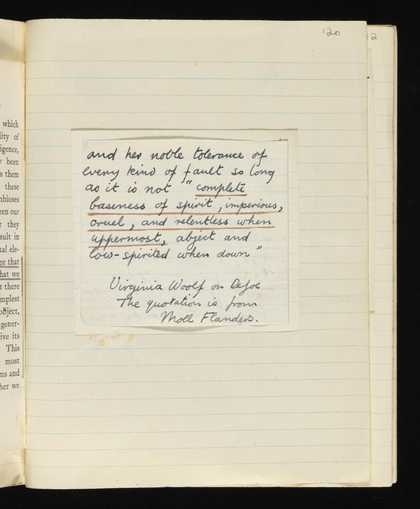 120
2
which
lity of
igence,
been
s them
these
mbioses
en our
they
sult in
al ele-
ge that
hat we
t there
mplest
object,
gener-
ive its
This
most
ms and
her we
and her noble tolerance of
every kind of fault so long
as it is not "complete
baseness of spirit, imperious,
cruel, and relentless when
uppermost, abject and
low-spirited when down"
Virginia Woolf on Defoe
The quotation is from
Moll Flanders.